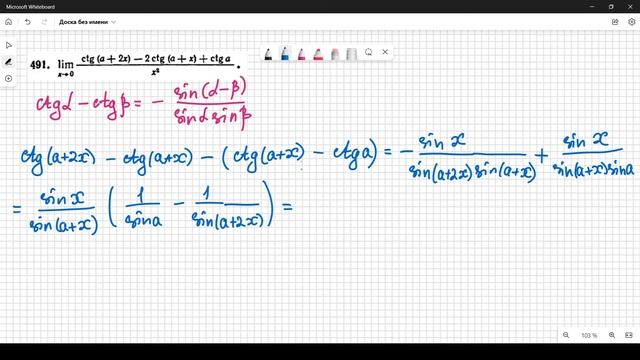 Microsoft Whiteboard
Доска без имени
491. lim x→0 (ctg (a + 2x) − 2 ctg (a + x) + ctg a) / x² .
ctgα − ctgβ = − sin(α−β) / (sinα sinβ)
ctg(a+2x) − ctg(a+x) − (ctg(a+x) − ctga) = − sin x / (sin(a+2x) sin(a+x)) + sin x / (sin(a+x) sina)
= sin x / sin(a+x) (1 / sina − 1 / sin(a+2x)) =
103 %